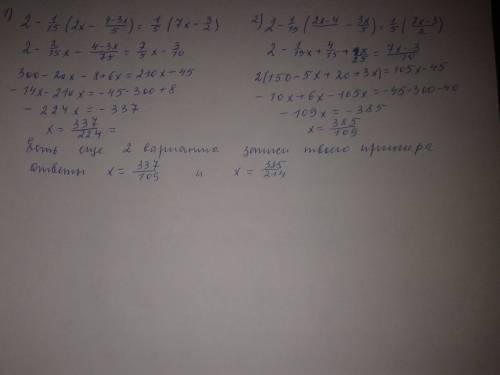 1) 2 - 1/15 (2x - (4-3x)/5) = 1/5 (7x - 3/2)
2 - 2/15 x - (4-3x)/75 = 7/5 x - 3/10
300 - 20x - 8 + 6x = 210x - 45
- 14x - 210x = - 45 - 300 + 8
- 224x = - 337
x = 337/224 =
2) 2 - 1/15 ( (2x-4)/ - 3x/5) = 1/5 ( (7x-3)/2 )
2(150 - 5x + 20 + 3x) = 105x - 45
- 10x + 6x - 105x = -45-300-40
- 109x = - 385
x = 385/109
Есть еще 2 варианта записи твоего примера
ответы x = 337/109 и x = 385/214